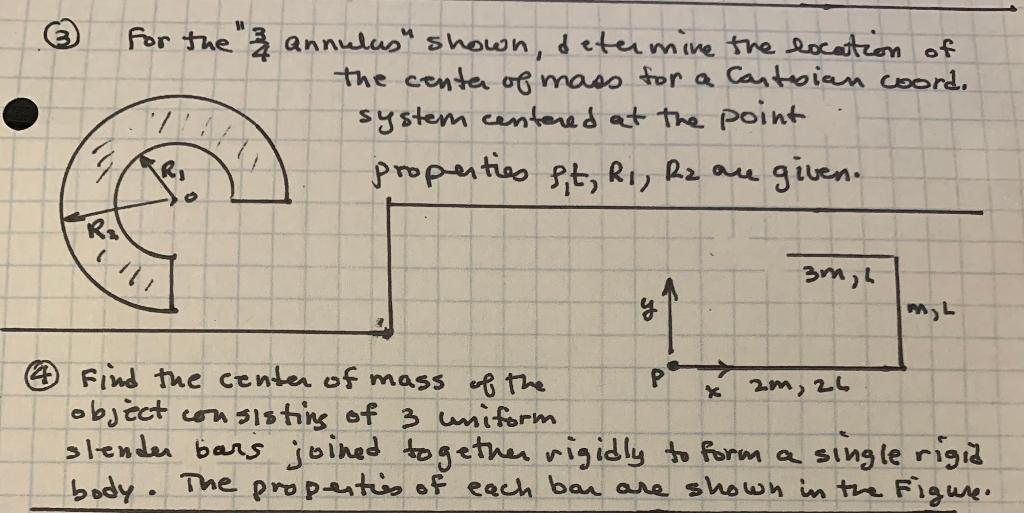 ③ For the "3/4 annulus" shown, determine the location of
the center of mass for a Cartesian coord.
system centered at the point
properties ρ, t, R1, R2 are given.
R1
O
R2
3m, L
m, L
y
P
x
2m, 2L
④ Find the center of mass of the
object consisting of 3 uniform
slender bars joined together rigidly to form a single rigid
body. The properties of each bar are shown in the Figure.